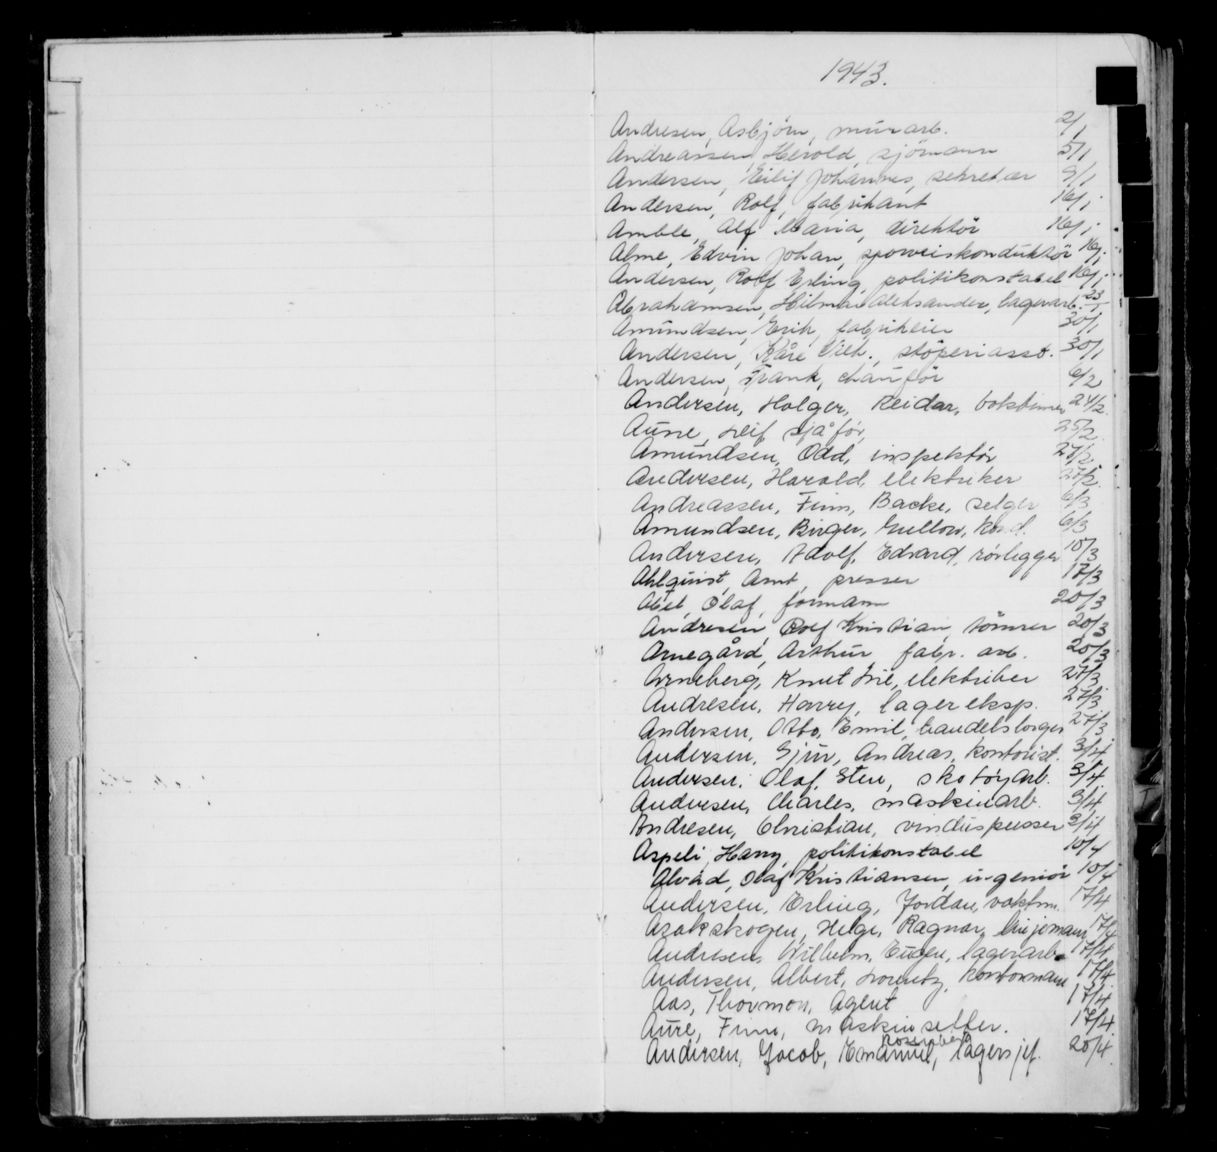 1943.
Andresen, Asbjörn, murarb. 2/1
Andreassen, Herold, sjömann 5/1
Andersen, Eilif Johannes, sekretær 9/1
Andersen, Rolf, fabrikant 16/1
Amble, Alf Maria, direktör 16/1
Alme, Edvin Johan, sporveiskonduktör 16/1
Andersen, Rolf Erling, politikonstabel 16/1
Abrahamsen, Hilmar Aleksander, lagerarb. 23/1
Amundsen, Erik, fabrikeier 30/1
Andersen, Kåre Vilh., støperiasst. 30/1
Andersen, Frank, chauffør 6/2
Andersen, Holger, Reidar, 24/2
Aune, Leif sjåfør, 25/2
Amundsen, Odd, inspektør 27/2
Andersen, Harald, elektriker 27/2
Andreassen, Finn, Backe, selger 6/3
Amundsen, Birger, 6/3
Andersen, Adolf, Edvard, rørlegger 10/3
Ahlquist, Arnt, presser 17/3
Abel, Olaf, formann 20/3
Andresen, Rolf Kristian, tømrer 20/3
Arnegård, Arthur fabr. arb. 20/3
Arneberg, Knut elektriker 27/3
Andresen, Harry, lagereksp. 27/3
Andersen, Otto, Emil, handelsborger 27/3
Andersen, Andreas, kontorist. 3/4
Andersen, Olaf, Sten, skotøyarb. 3/4
Andersen, Charles, maskinarb. 3/4
Andresen, Christian, vinduspusser 3/4
Aspeli, Harry, politikonstabel 10/4
Alvåd, Olaf Kristiansen, ingeniør 10/4
Andersen, Erling, Jordan, vaktm. 17/4
Asakskogen, Helge, Ragnar, linjemann 17/4
Andresen, Wilhelm, Eugen, lagerarb. 17/4
Andersen, Albert, Lorentz, kontormann 17/4
Aas, Thormon, Agent 17/4
Aure, Finn, maskinsetter. 17/4
Rosenberg
Andersen, Jacob, Emanuel, lagersjef. 20/4